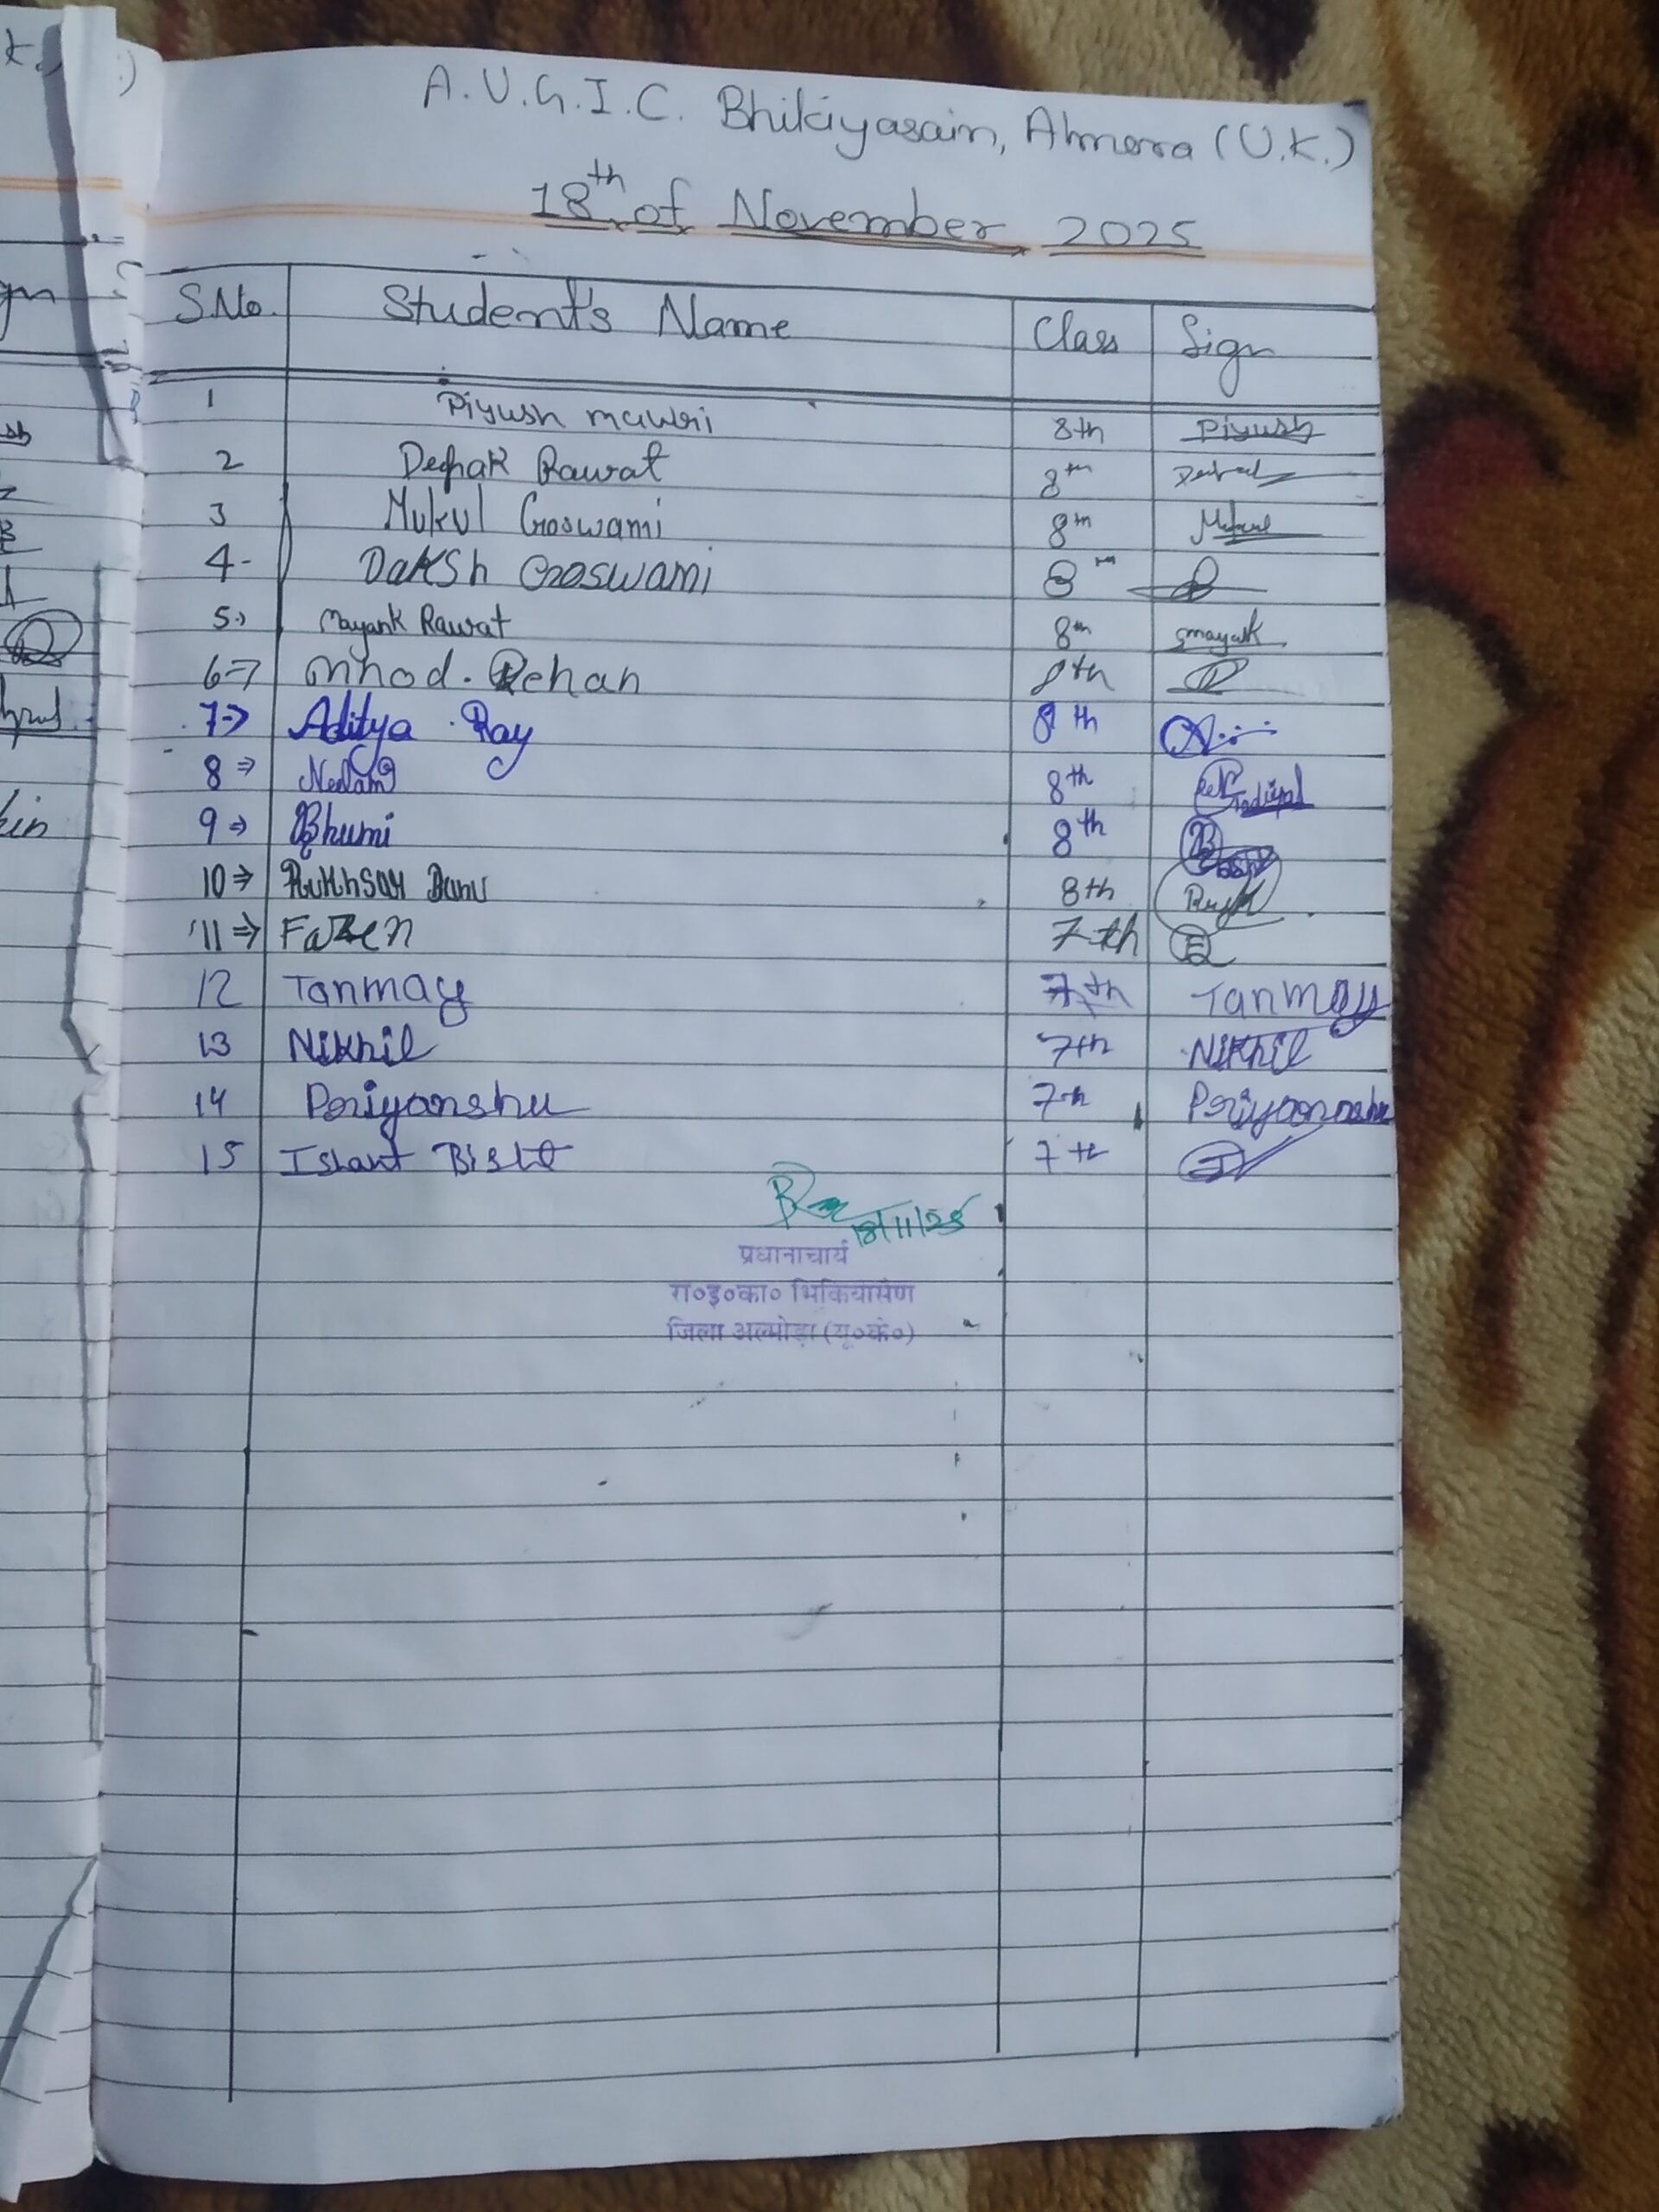 A.U.G.I.C. Bhikiyasain, Almora (U.K.)
18th of November 2025
S.No. Student's Name Class Sign
1 Piyush mawri 8th Piyush
2 Deepak Rawat 8th
3 Mukul Goswami 8th Mukul
4- Daksh Goswami 8th
5.) Mayank Rawat 8th mayank
6=> mhod. Rehan 8th
7-> Aditya Ray 8th
8 => Neelam 8th
9 => Bhumi 8th B
10 => Rukhsar Banu 8th
11 => Fazen 7th F
12 Tanmay 7th Tanmay
13 Nikhil 7th Nikhil
14 Periyanshu 7th
15 Ishant Bisht 7th
18/11/25
प्रधानाचार्य
रा०इ०का० भिकियासैण
जिला अल्मोड़ा (यू०के०)